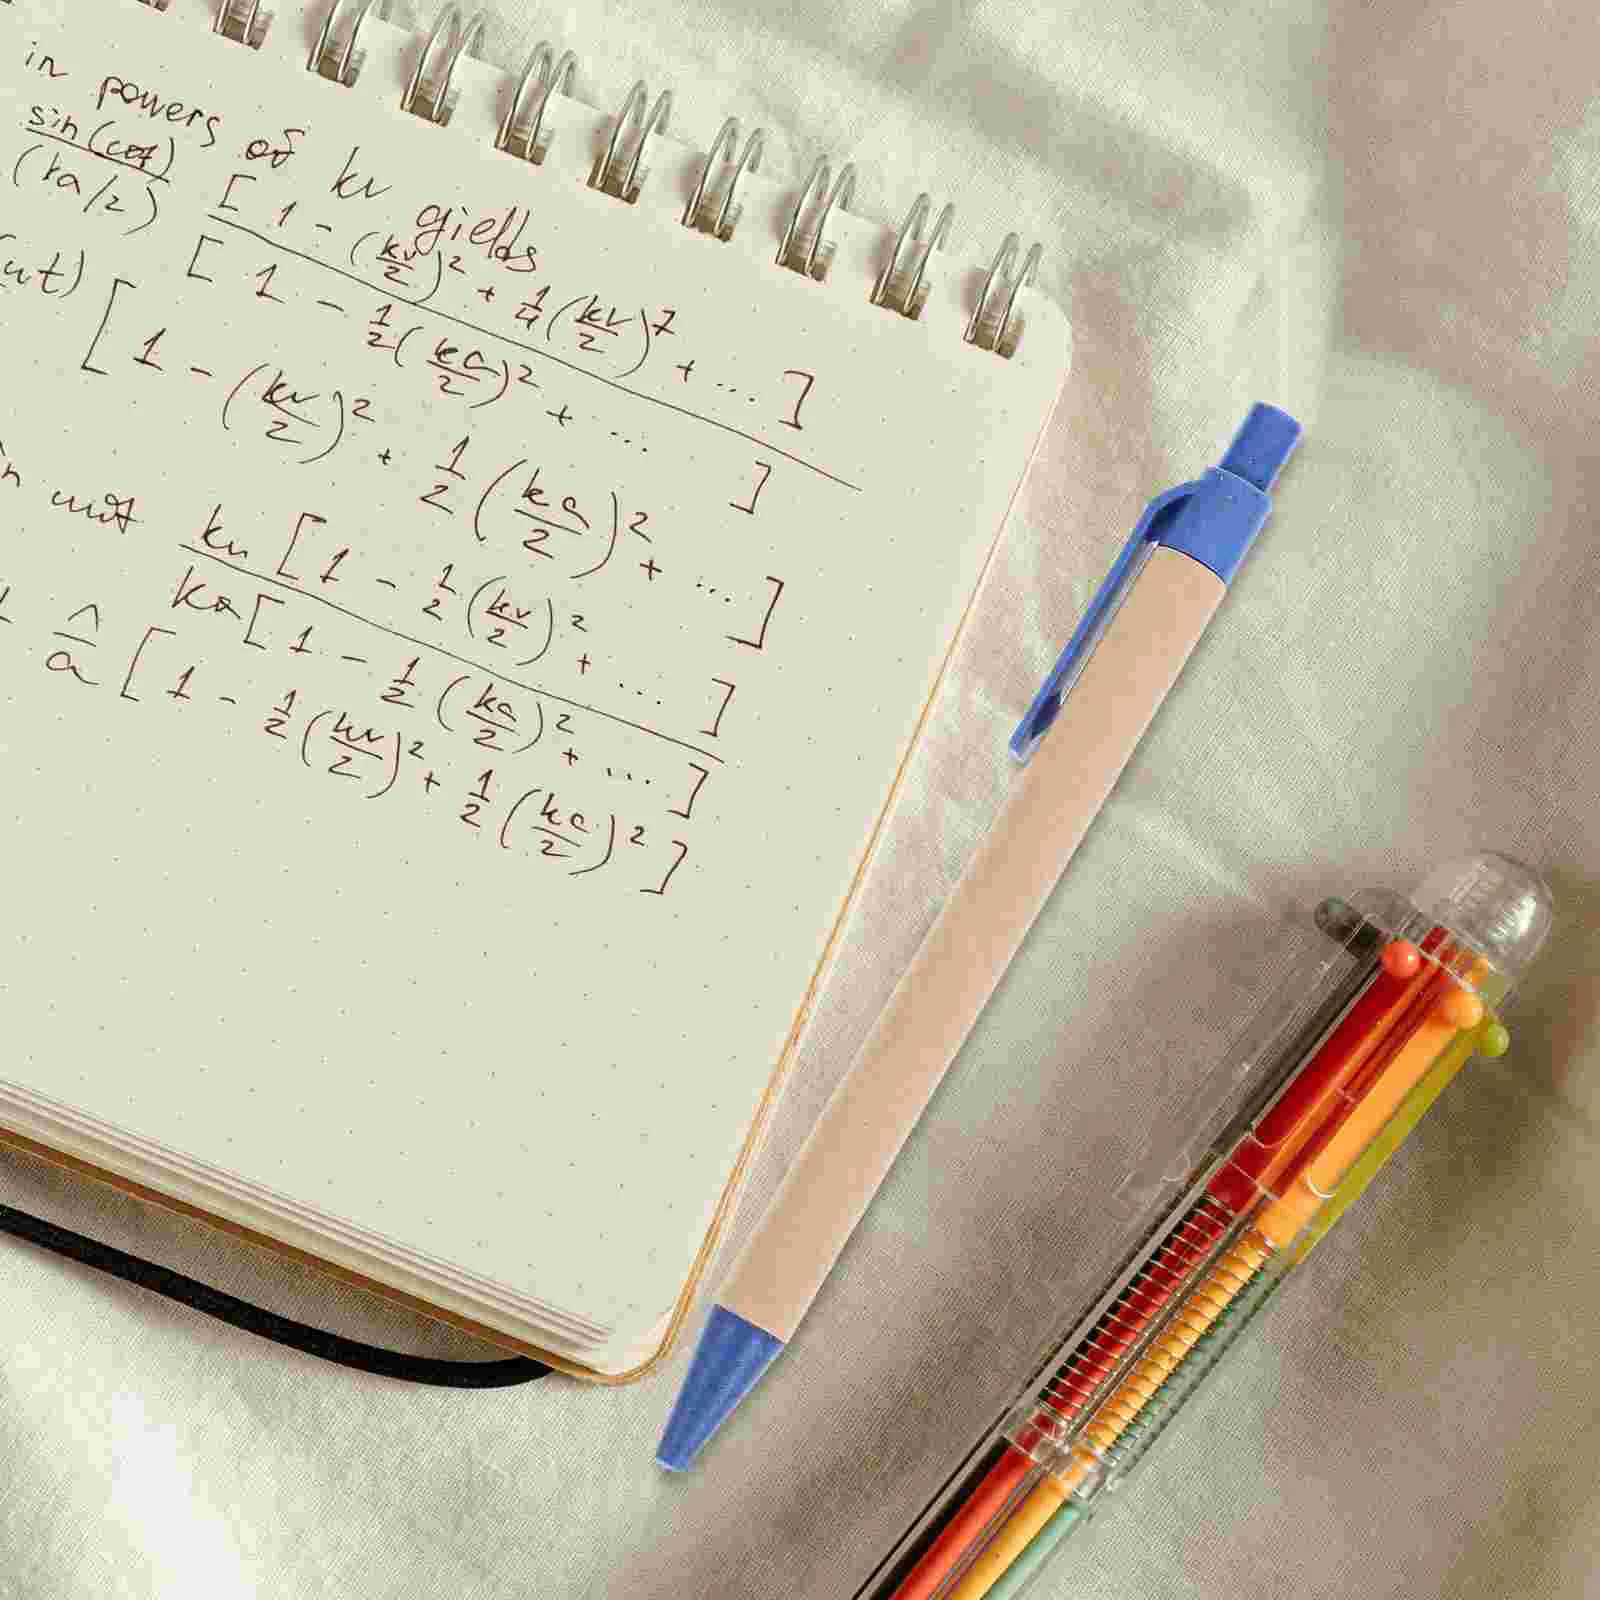 in powers of kr yields
sin(ωt) / (ka/2) [1 - (kr/2)^2 + 1/4 (kr/2)^7 + ...] / [1 - 1/2 (ka/2)^2 + ... ]
(ωt) [1 - (kr/2)^2 + 1/2 (ka/2)^2 + ...]
in ωt kr [1 - 1/2 (kr/2)^2 + ...] / ka [1 - 1/2 (ka/2)^2 + ...]
^/a [1 - 1/2 (kr/2)^2 + 1/2 (ka/2)^2]